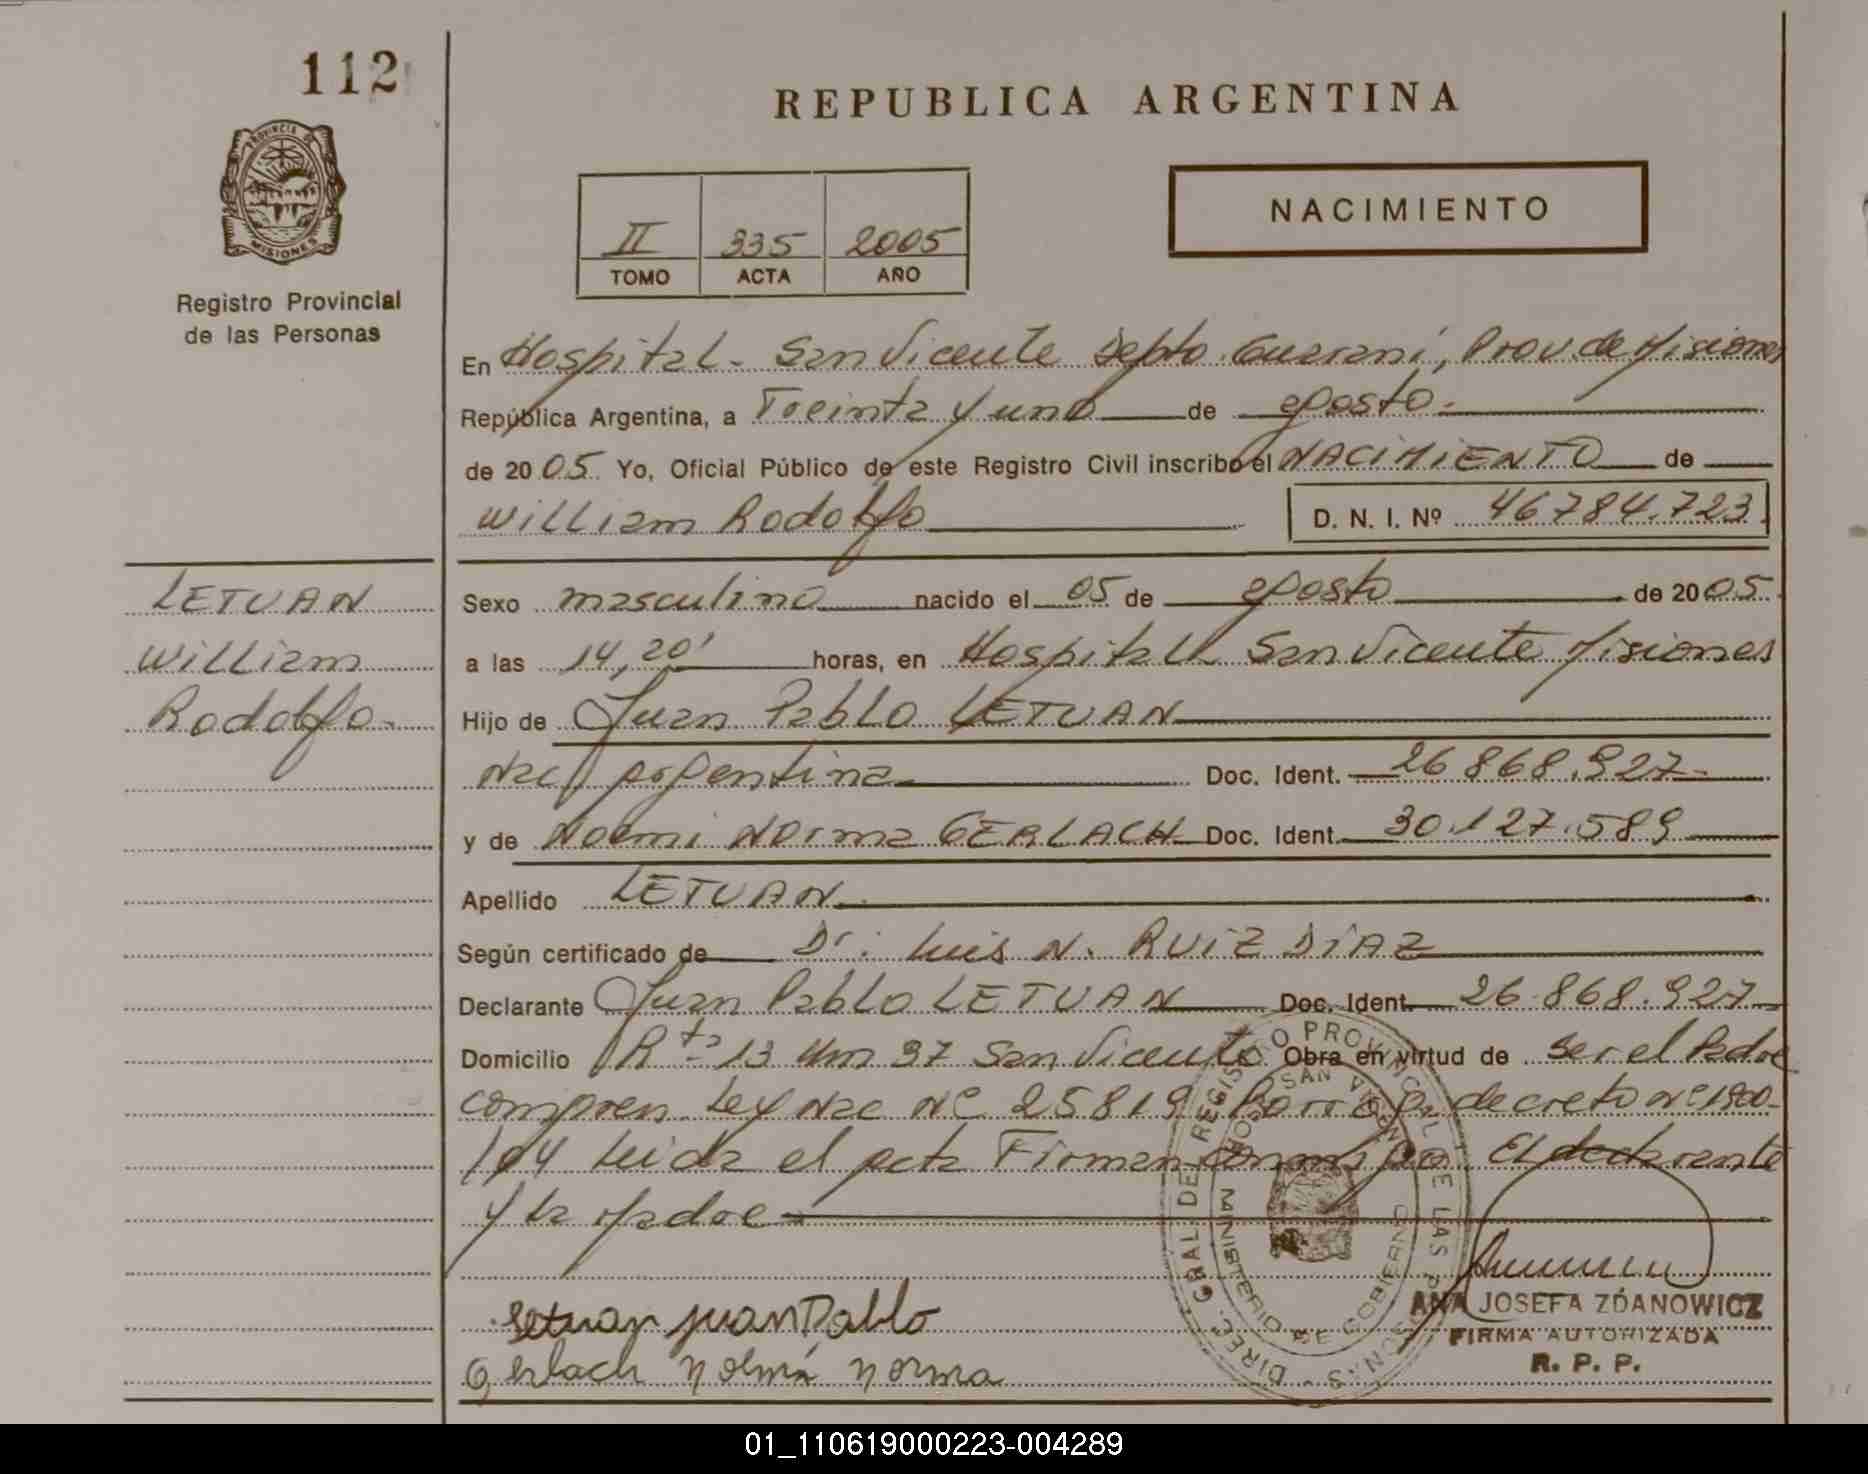 112
REPUBLICA ARGENTINA
PROVINCIA DE
MISIONES
Registro Provincial
de las Personas
II 335 2005
TOMO ACTA AÑO
NACIMIENTO
En Hospital - San Vicente Depto. Guarani, Prov de Misiones
República Argentina, a Treinta y uno de agosto.
de 20 05. Yo, Oficial Público de este Registro Civil inscribo el NACIMIENTO de
William Rodolfo D. N. I. Nº 46784.723.
LETUAN
William
Rodolfo.
Sexo masculino nacido el 05 de agosto de 20 05.
a las 14,20' horas, en Hospital San Vicente Misiones
Hijo de Juan Pablo LETUAN
Nac argentina Doc. Ident. 26 868.927-
y de Noemi Norma GERLACH Doc. Ident. 30.127.589
Apellido LETUAN
Según certificado de Dr: Luis N. RUIZ DIAZ
Declarante Juan Pablo LETUAN Doc. Ident. 26.868.927
Domicilio Rta 13 Km 37 San Vicente Obra en virtud de ser el Padre
compren Ley Nac Nº 25819 decreto Nº 1900-
/04 Leida el acta Firman conmigo El declarante
y la Madre
Letuan juan Pablo
Gerlach Noemi Norma
DIREC. GRAL DE REGISTRO PROVINCIAL DE LAS PERSONAS
HOSP. SAN VICENTE
MINISTERIO DE GOBIERNO
ANA JOSEFA ZDANOWICZ
FIRMA AUTORIZADA
R. P. P.
01_110619000223-004289